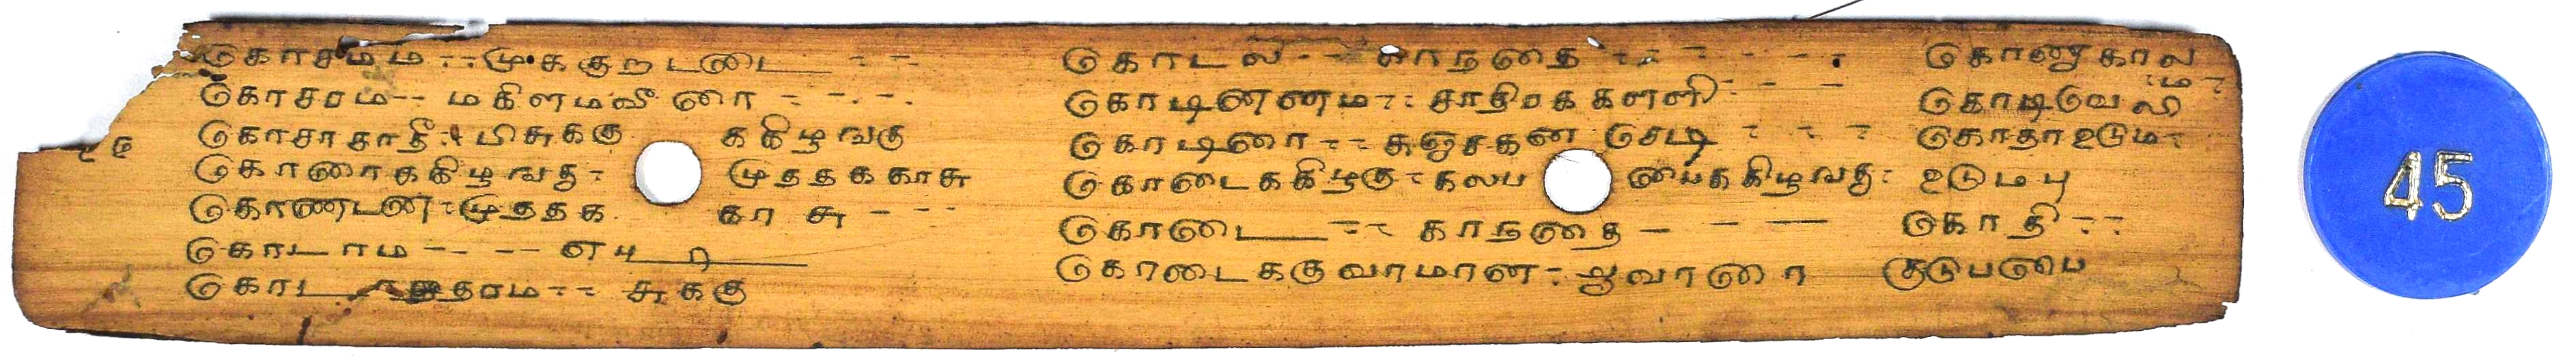 கொசமம -- முககுறடடை -- --
கொசரம -- மகிளமவீரை - - - -
கொசாதாதீ - பிசுககு
ககிழஙகு
கொரைககிழஙகு - முததககாசு
கொணடன - முததக காசு - - -
கொடாம - - -- எ
கொட தரம -- சுககு
கொடல - - காநதை - - - - - -
கொடிணணம - - சாதிககளளி - - -
கொடிரை - - கஞசகன செடி - - -
கொடைககிழகு - கலப பைககிழஙகு -
கொடை -- காநதை - - --
கொடைககுவாமான - ஆவாரை
கொணுகால
கொடிவேலி
கொதா உடும -
உடும்பு
கொதி - -
குடுபபை
45